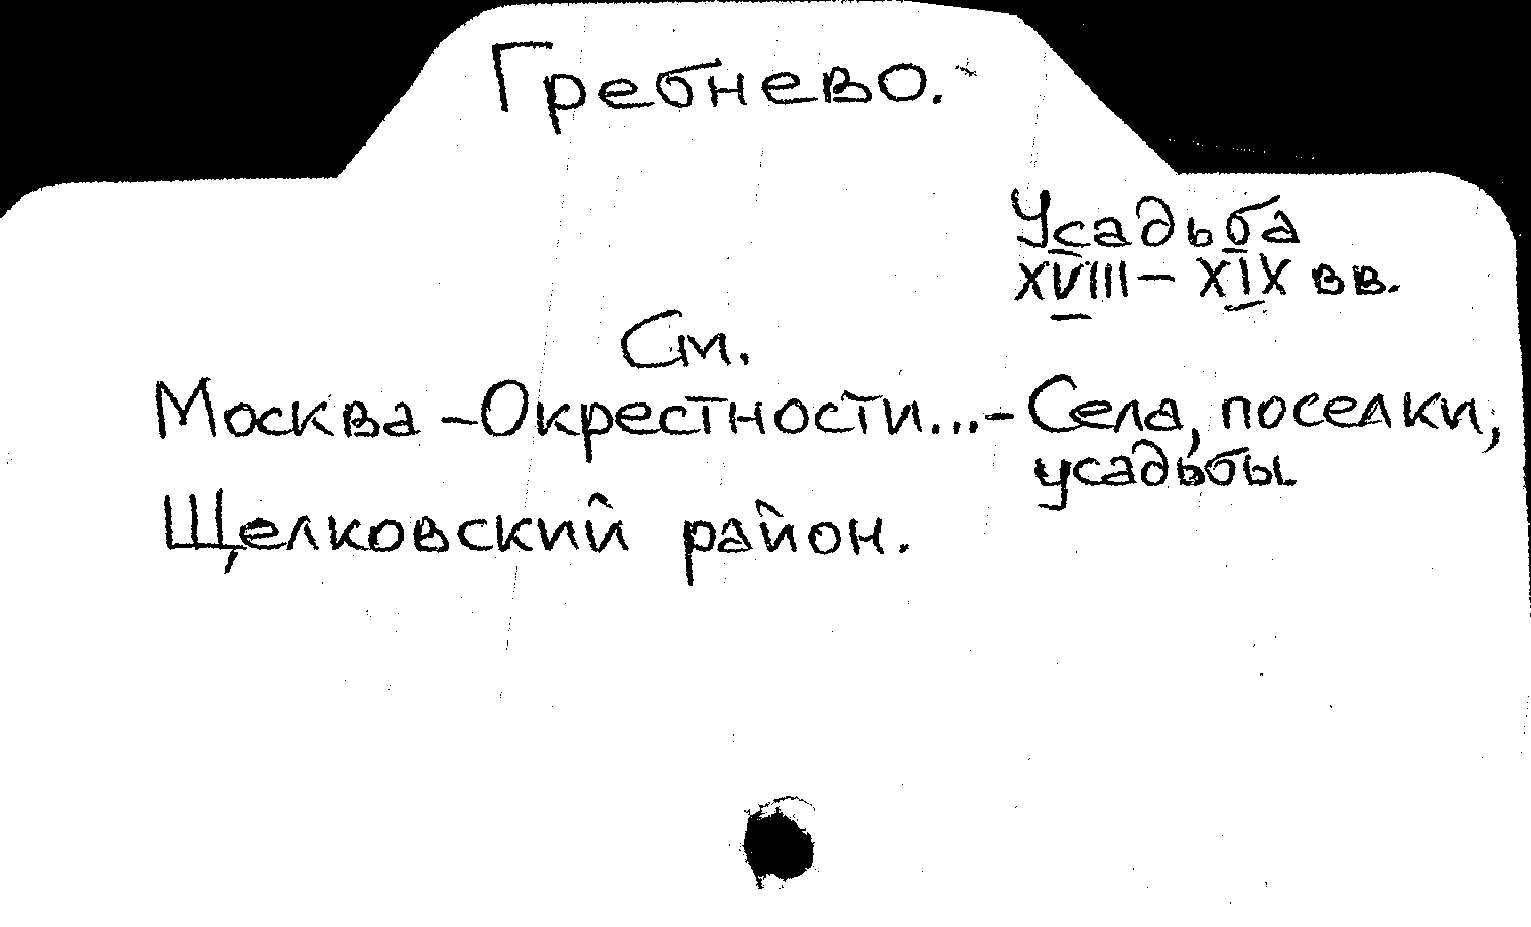 Гребнево.
Усадьба
XVIII – XIX вв.
См.
Москва – Окрестности...– Села, поселки,
усадьбы.
Щелковский район.